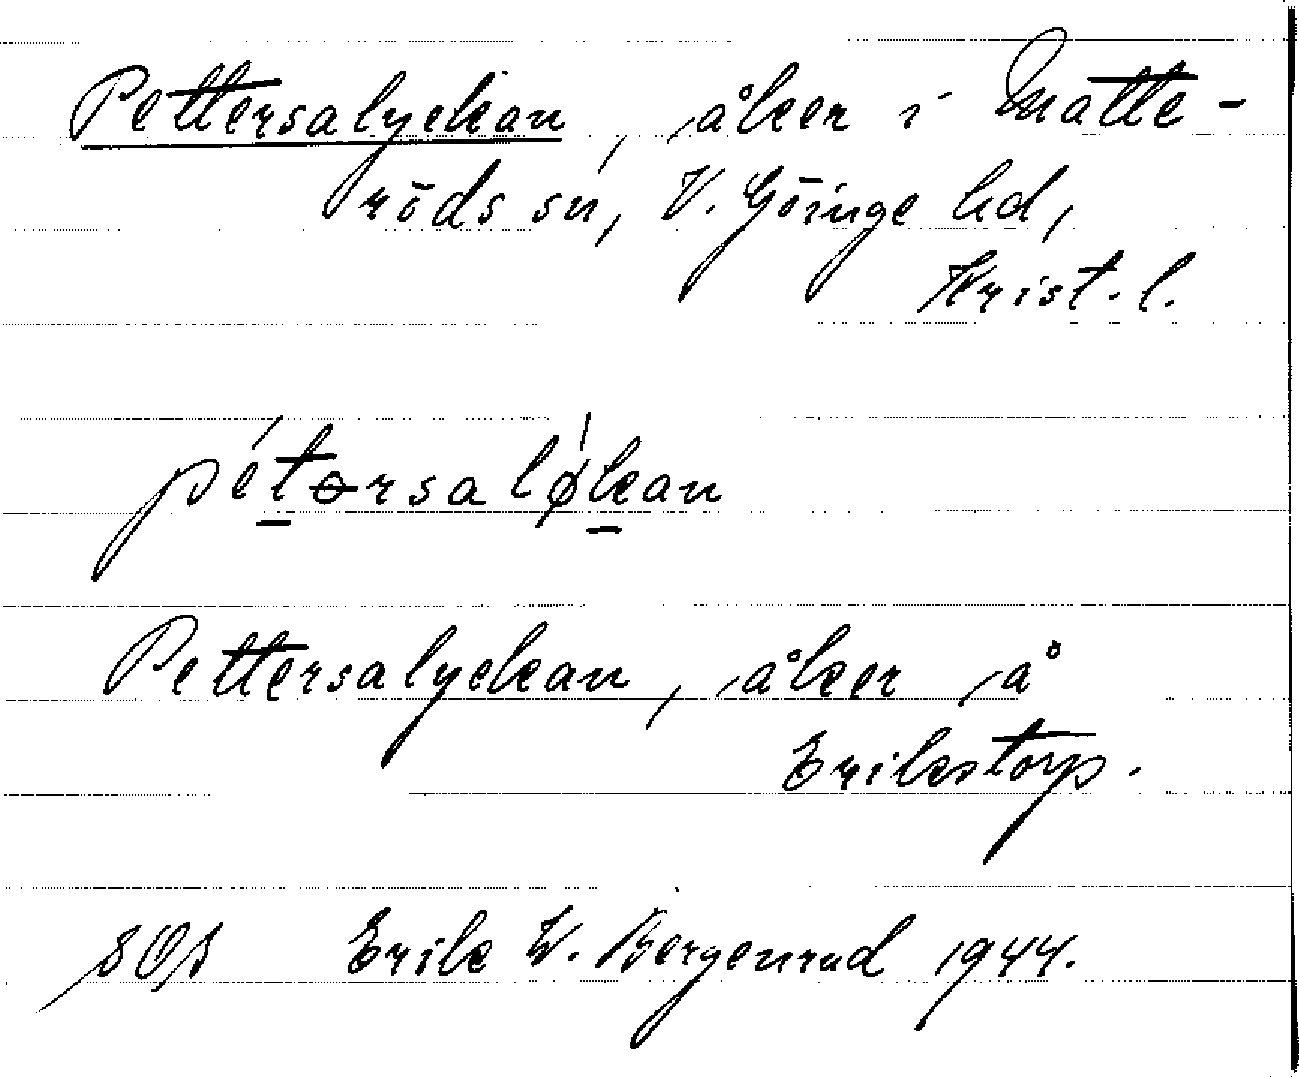 Pettersalyckan, åker i Matte-
röds sn, V. Göinge hd,
Krist. l.
pétɵrsaløkan
Pettersalyckan, åker på
Erikstorp.
SOS Erik W. Bergenrud 1944.